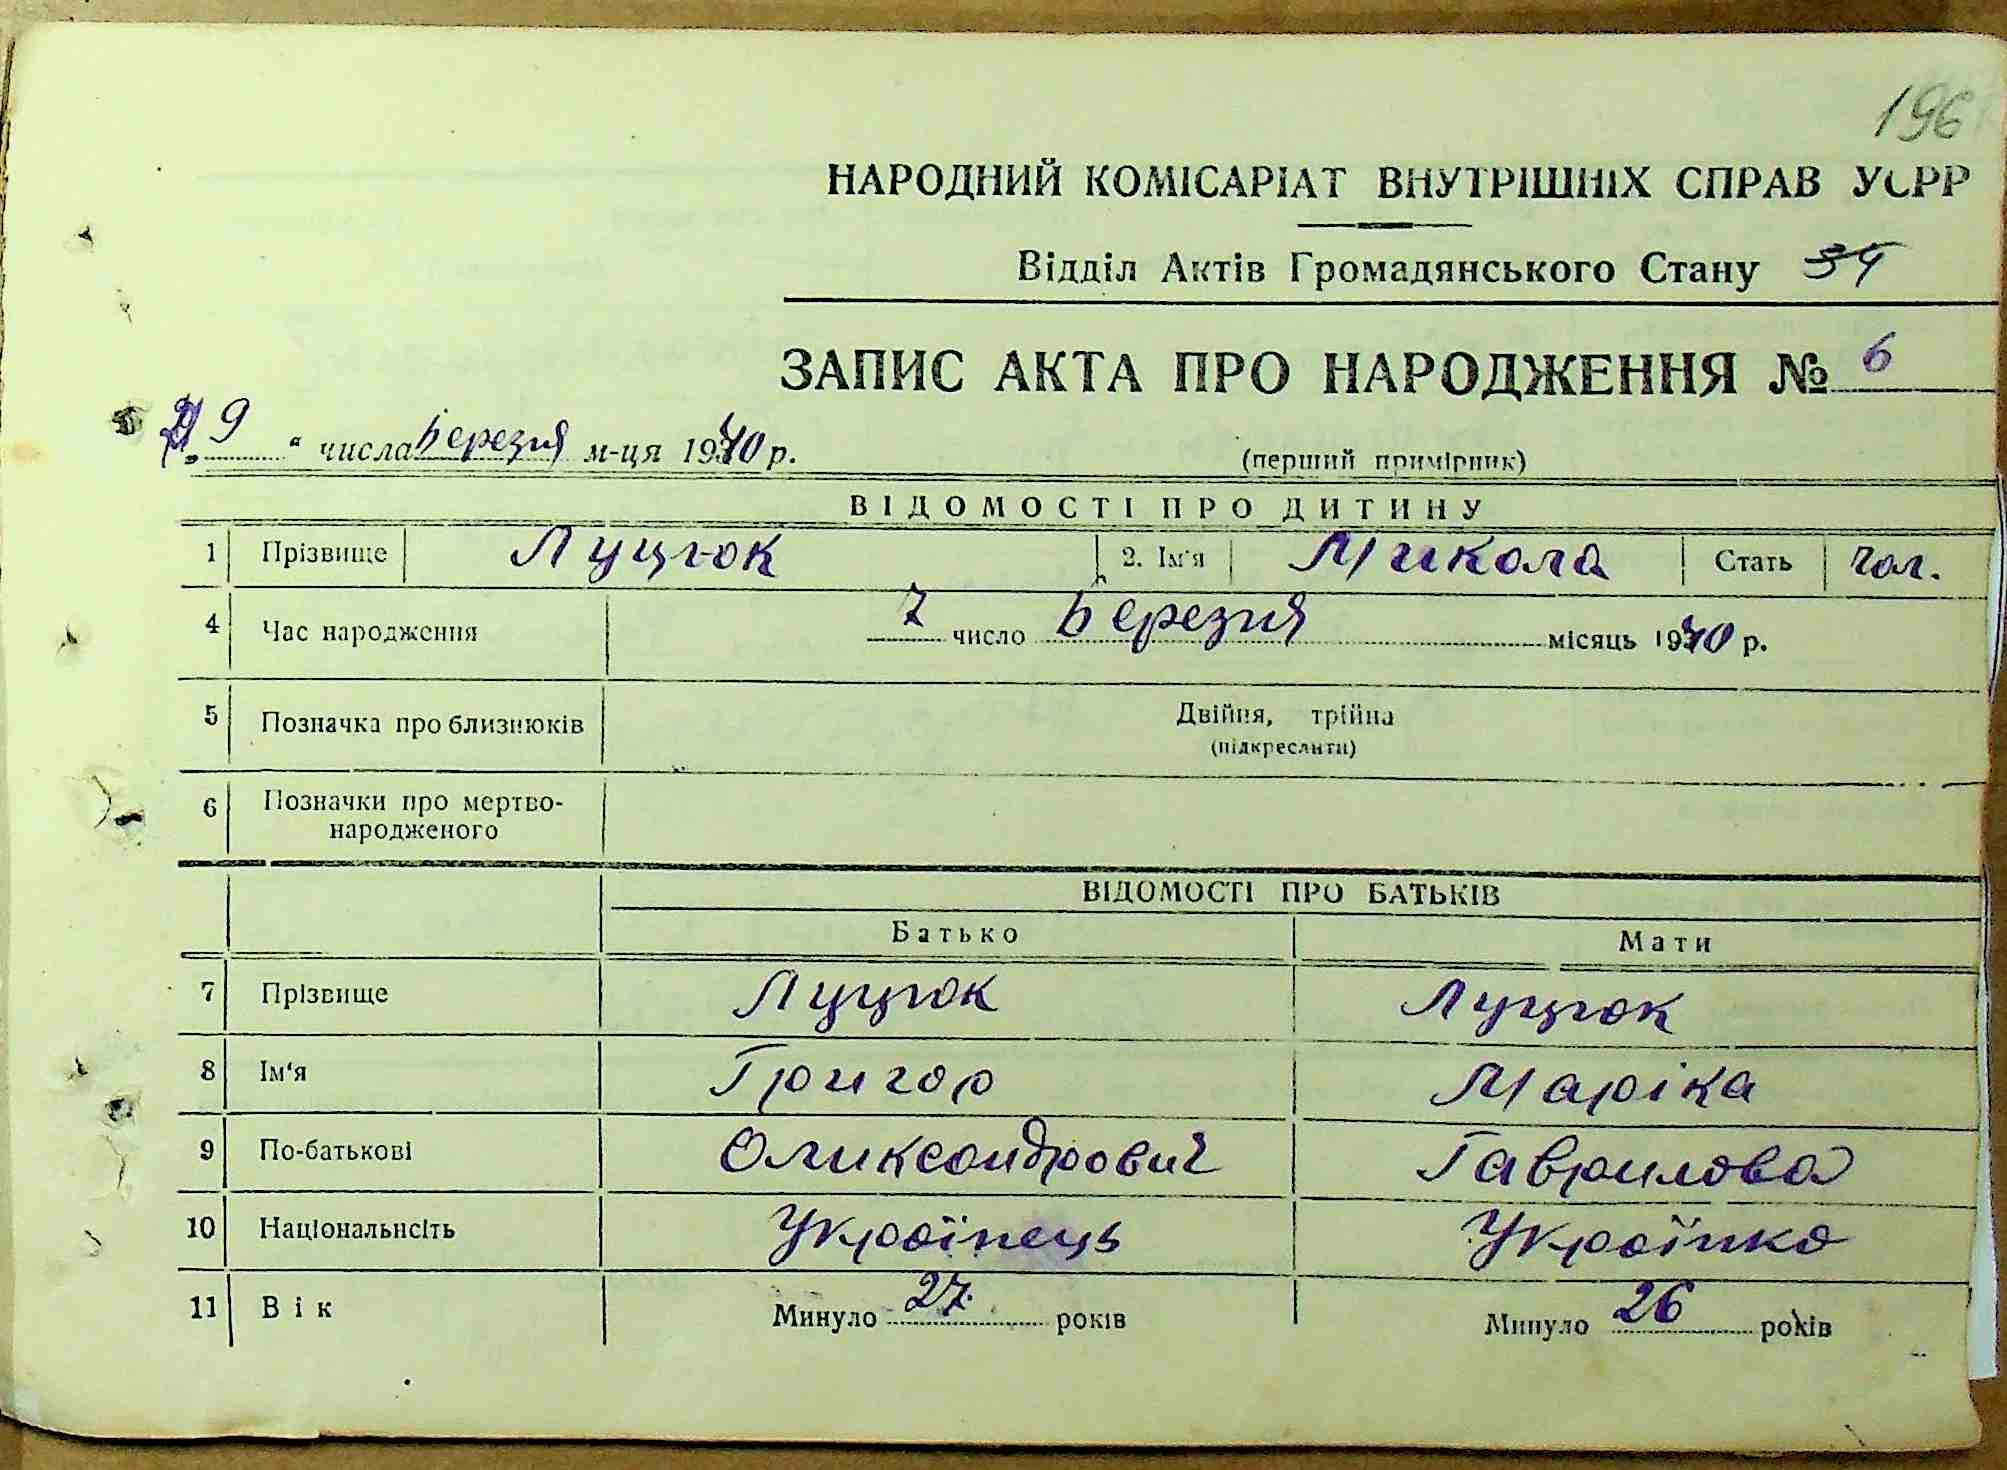 196
НАРОДНИЙ КОМІСАРІАТ ВНУТРІШНІХ СПРАВ УСРР
Відділ Актів Громадянського Стану 34
ЗАПИС АКТА ПРО НАРОДЖЕННЯ № 6
„ 9 “ числа березня м-ця 1940 р. (перший примірник)
ВІДОМОСТІ ПРО ДИТИНУ
1 Прізвище Луцюк 2. Ім'я Микола Стать чол.
4 Час народження 7 число березня місяць 1940 р.
5 Позначка про близнюків Двійня, трійна
(підкреслити)
6 Позначки про мертво-
народженого
ВІДОМОСТІ ПРО БАТЬКІВ
Батько Мати
7 Прізвище Луцюк Луцюк
8 Ім'я Григор Маріка
9 По-батькові Оликсандрович Гаврилова
10 Національнсіть Українець Українка
11 Вік Минуло 27 років Минуло 26 років